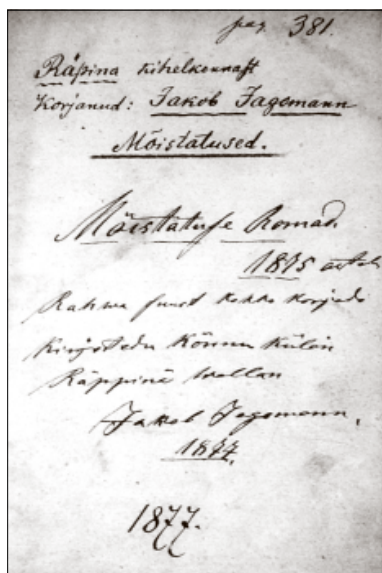 pag. 381.
Räpina kihelkonnast
Korjanud: Jakob Jagomann
Mõistatused.
Mõistatuse Romat.
1875
Rahwa suust kokko korjedi
Kirjotedu Könnu Külän
Räppinä wallan
Jakob Jagomann.
1877.
1877.